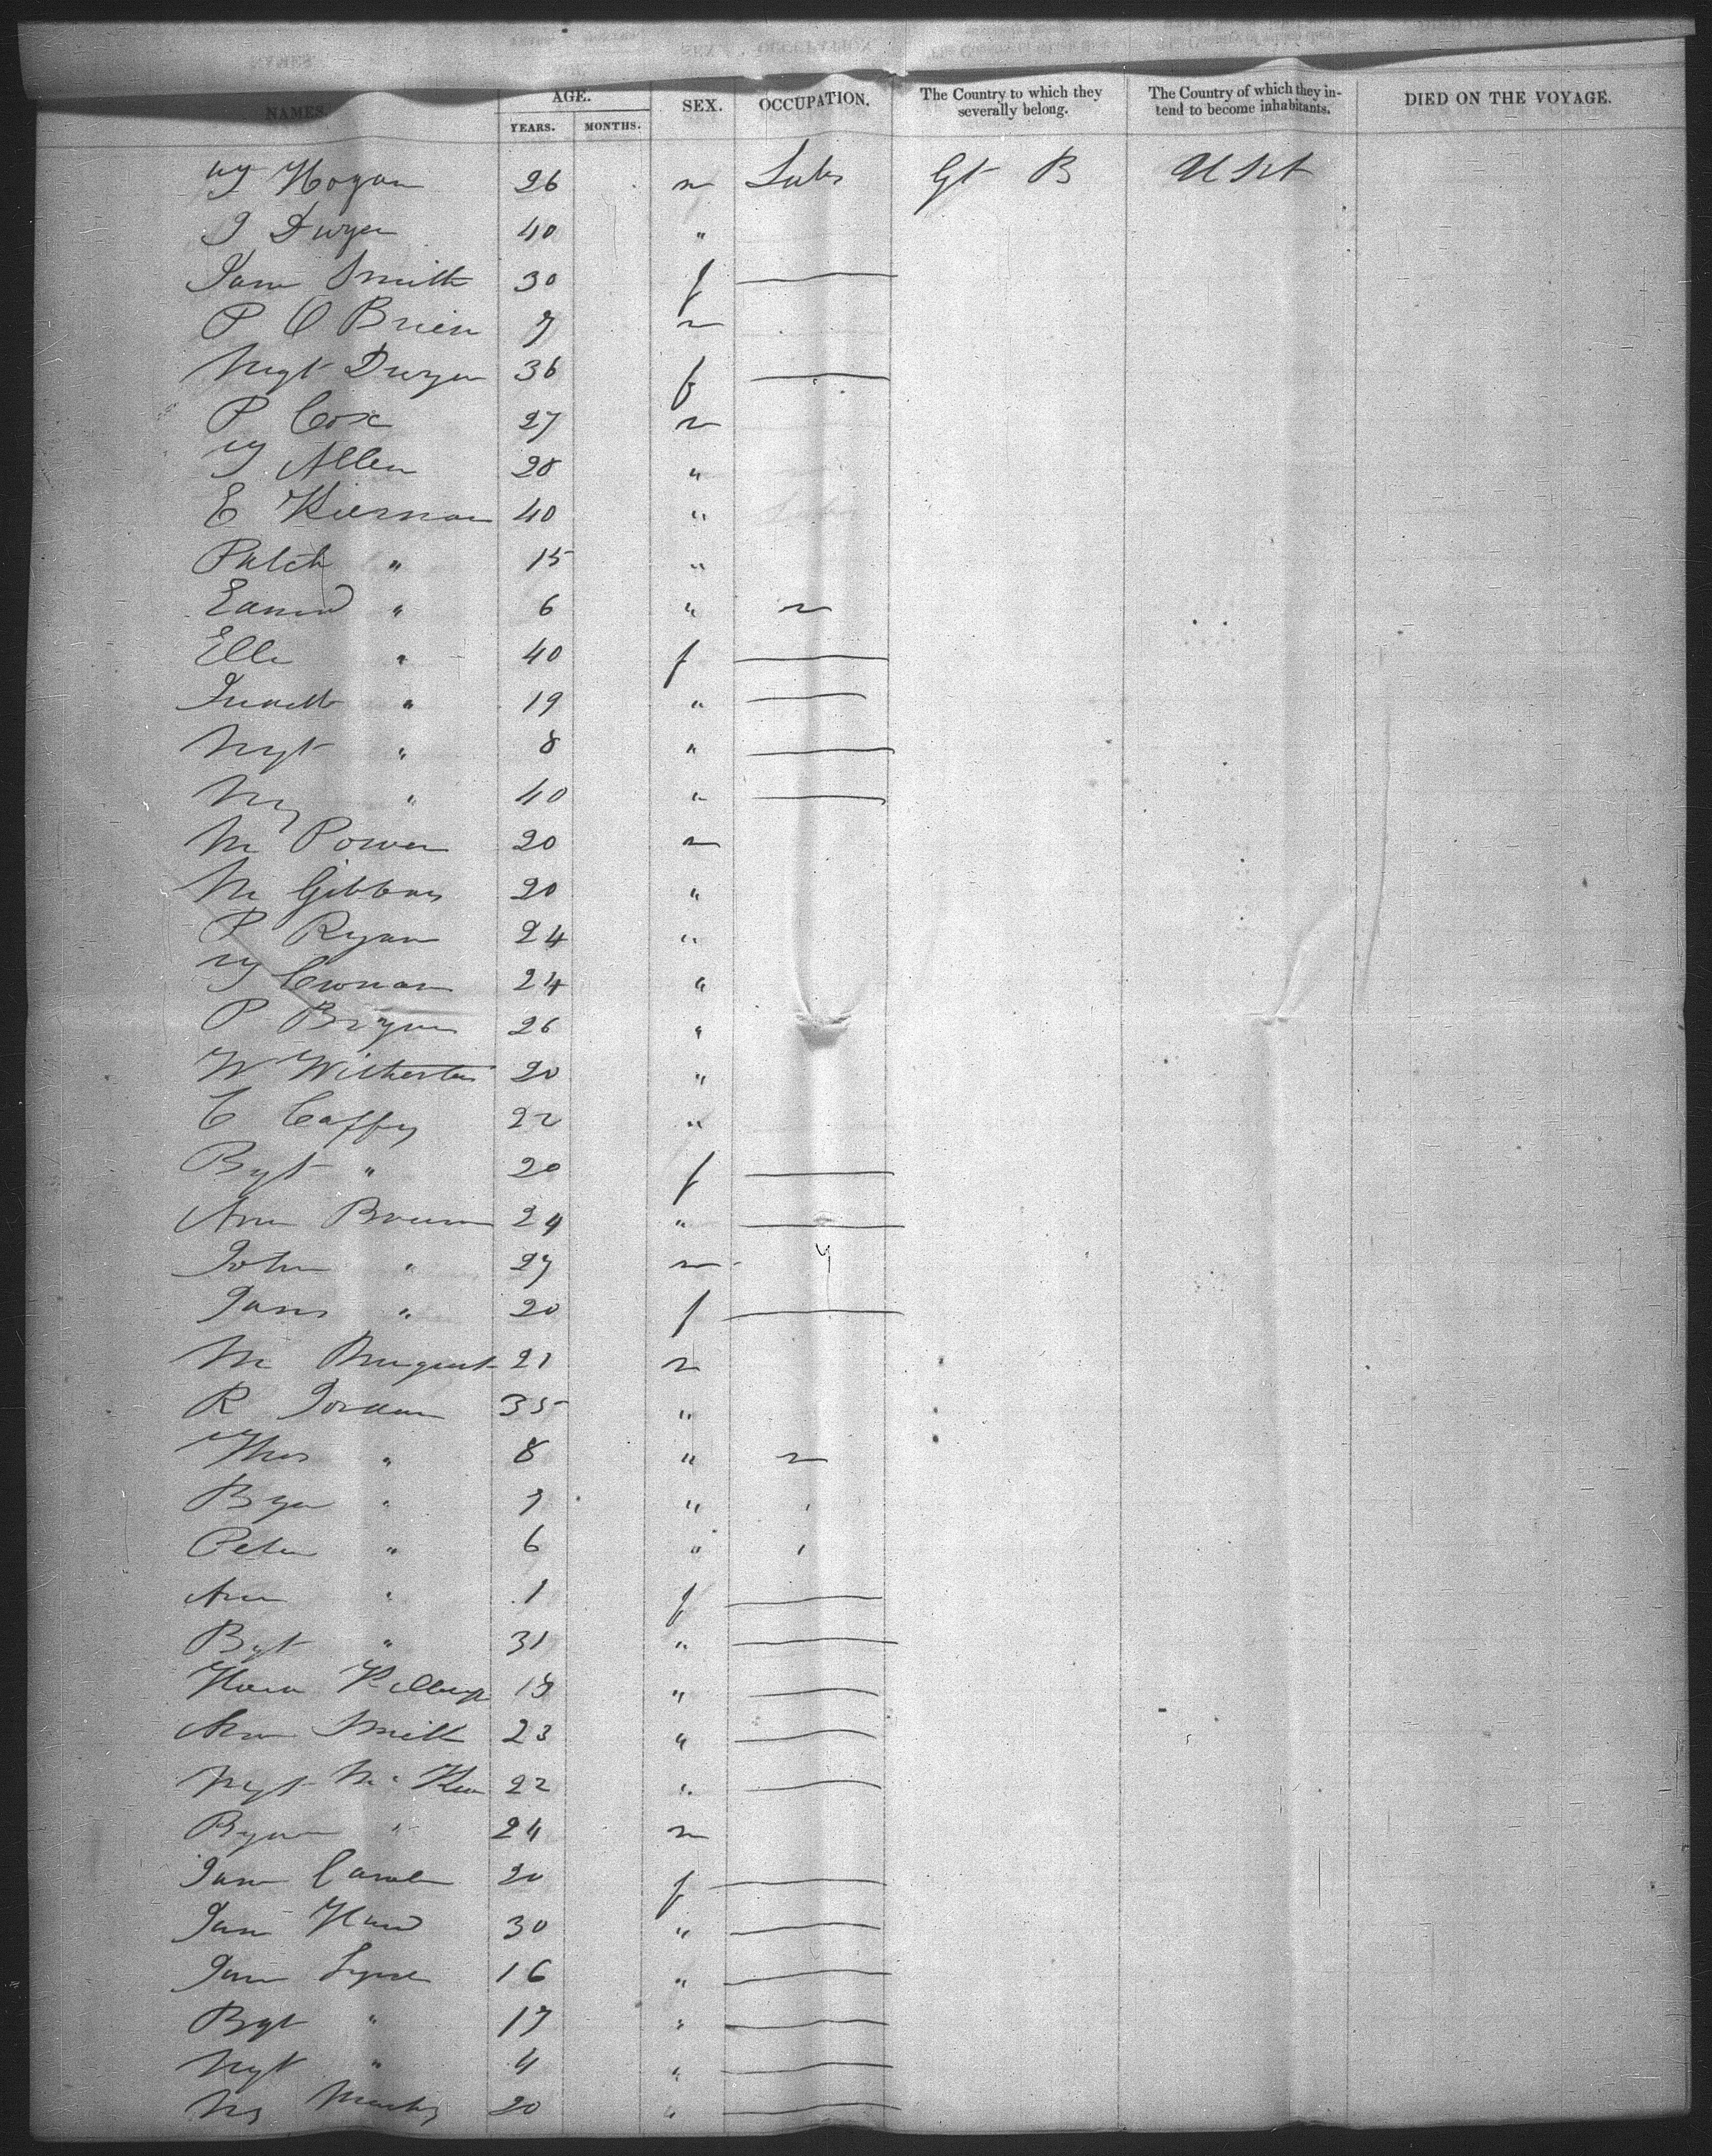 NAMES. AGE. YEARS. MONTHS. SEX. OCCUPATION. The Country to which they severally belong. The Country of which they intend to become inhabitants. DIED ON THE VOYAGE.
Hogan 26 m Labr Gt B U St
Dwyer 40 "
Jane Smith 30 f
P O Brien 7 m
Mgt Dwyer 36 f
P Cox 27 m
Allen 28 "
E Kiernan 40 "
Patck " 15 "
Edmd " 6 " ~
Ellen " 40 f
" 19 "
Mgt " 8 "
My " 40 "
M Power 20 m
M Gibbons 20 "
P Ryan 24 "
24 "
P Bryan 26 "
W 20 "
C Caffy 22 "
Bgt " 20 f
Ann 24 "
John " 27 m
Jane " 20 f
M 21 m
R Jordan 35 "
Thos " 8 " ~
" 7 "
Peter " 6 "
Ann " 1 f
Bgt " 31 "
"
Ann Smith 23 "
Mgt Mc 22 "
Bryan " 24 m
Jane 20 f
Jane 30 "
Jane Lynch 16 "
Bgt " 17 "
Mgt " 4 "
My 20 "